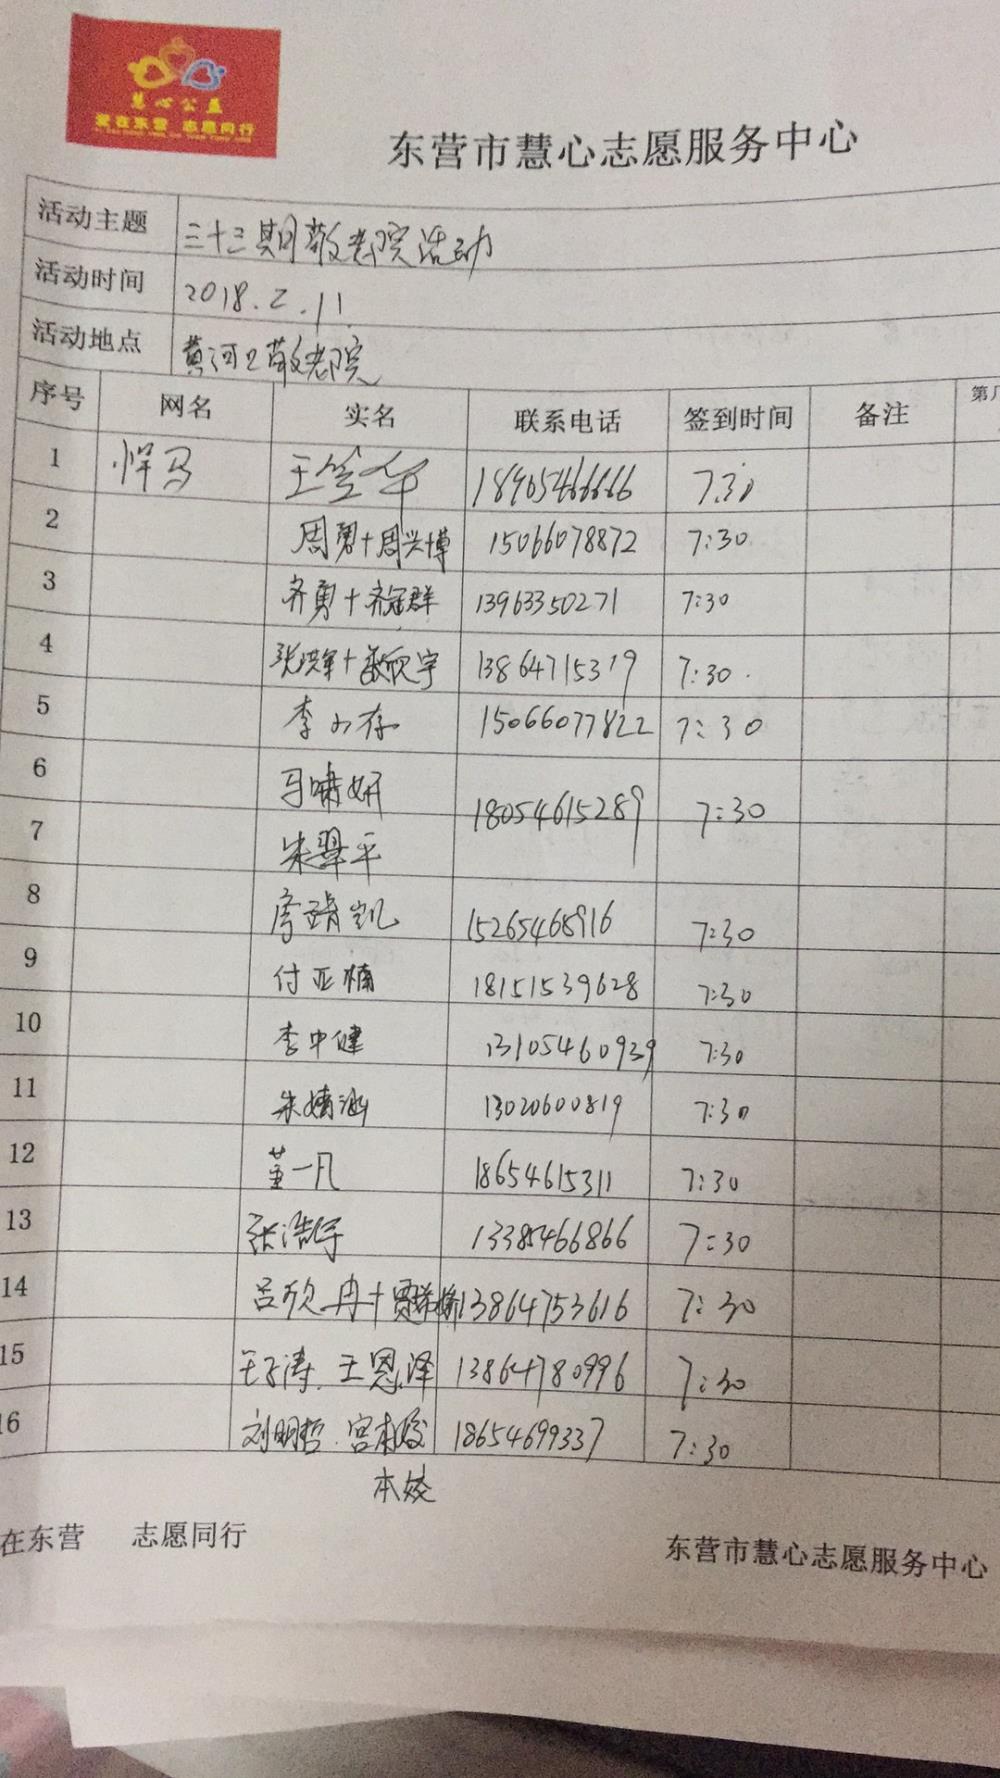 慧心公益
爱在东营 志愿同行
东营市慧心志愿服务中心
活动主题 三十三期敬老院活动
活动时间 2018.2.11
活动地点 黄河口敬老院
序号 网名 实名 联系电话 签到时间 备注 第
1 悍马 王 18905466666 7:30
2 周勇+周兴博 15066078872 7:30
3 齐勇+齐冠群 13963350271 7:30
4 张洪军+张欣宇 13864715319 7:30
5 李小存 15066077822 7:30
6 马啸妍 18054615289 7:30
7 朱翠平
8 靖凯 15265468916 7:30
9 付亚楠 18151539628 7:30
10 李中健 13105460939 7:30
11 朱婧涵 13020600819 7:30
12 董一凡 18654615311 7:30
13 张浩宇 13385466866 7:30
14 吕欣冉+贾 13864753616 7:30
15 王子涛、王恩泽 13864780996 7:30
16 刘明哲、宫本 18654699337 7:30
本姣
在东营 志愿同行
东营市慧心志愿服务中心